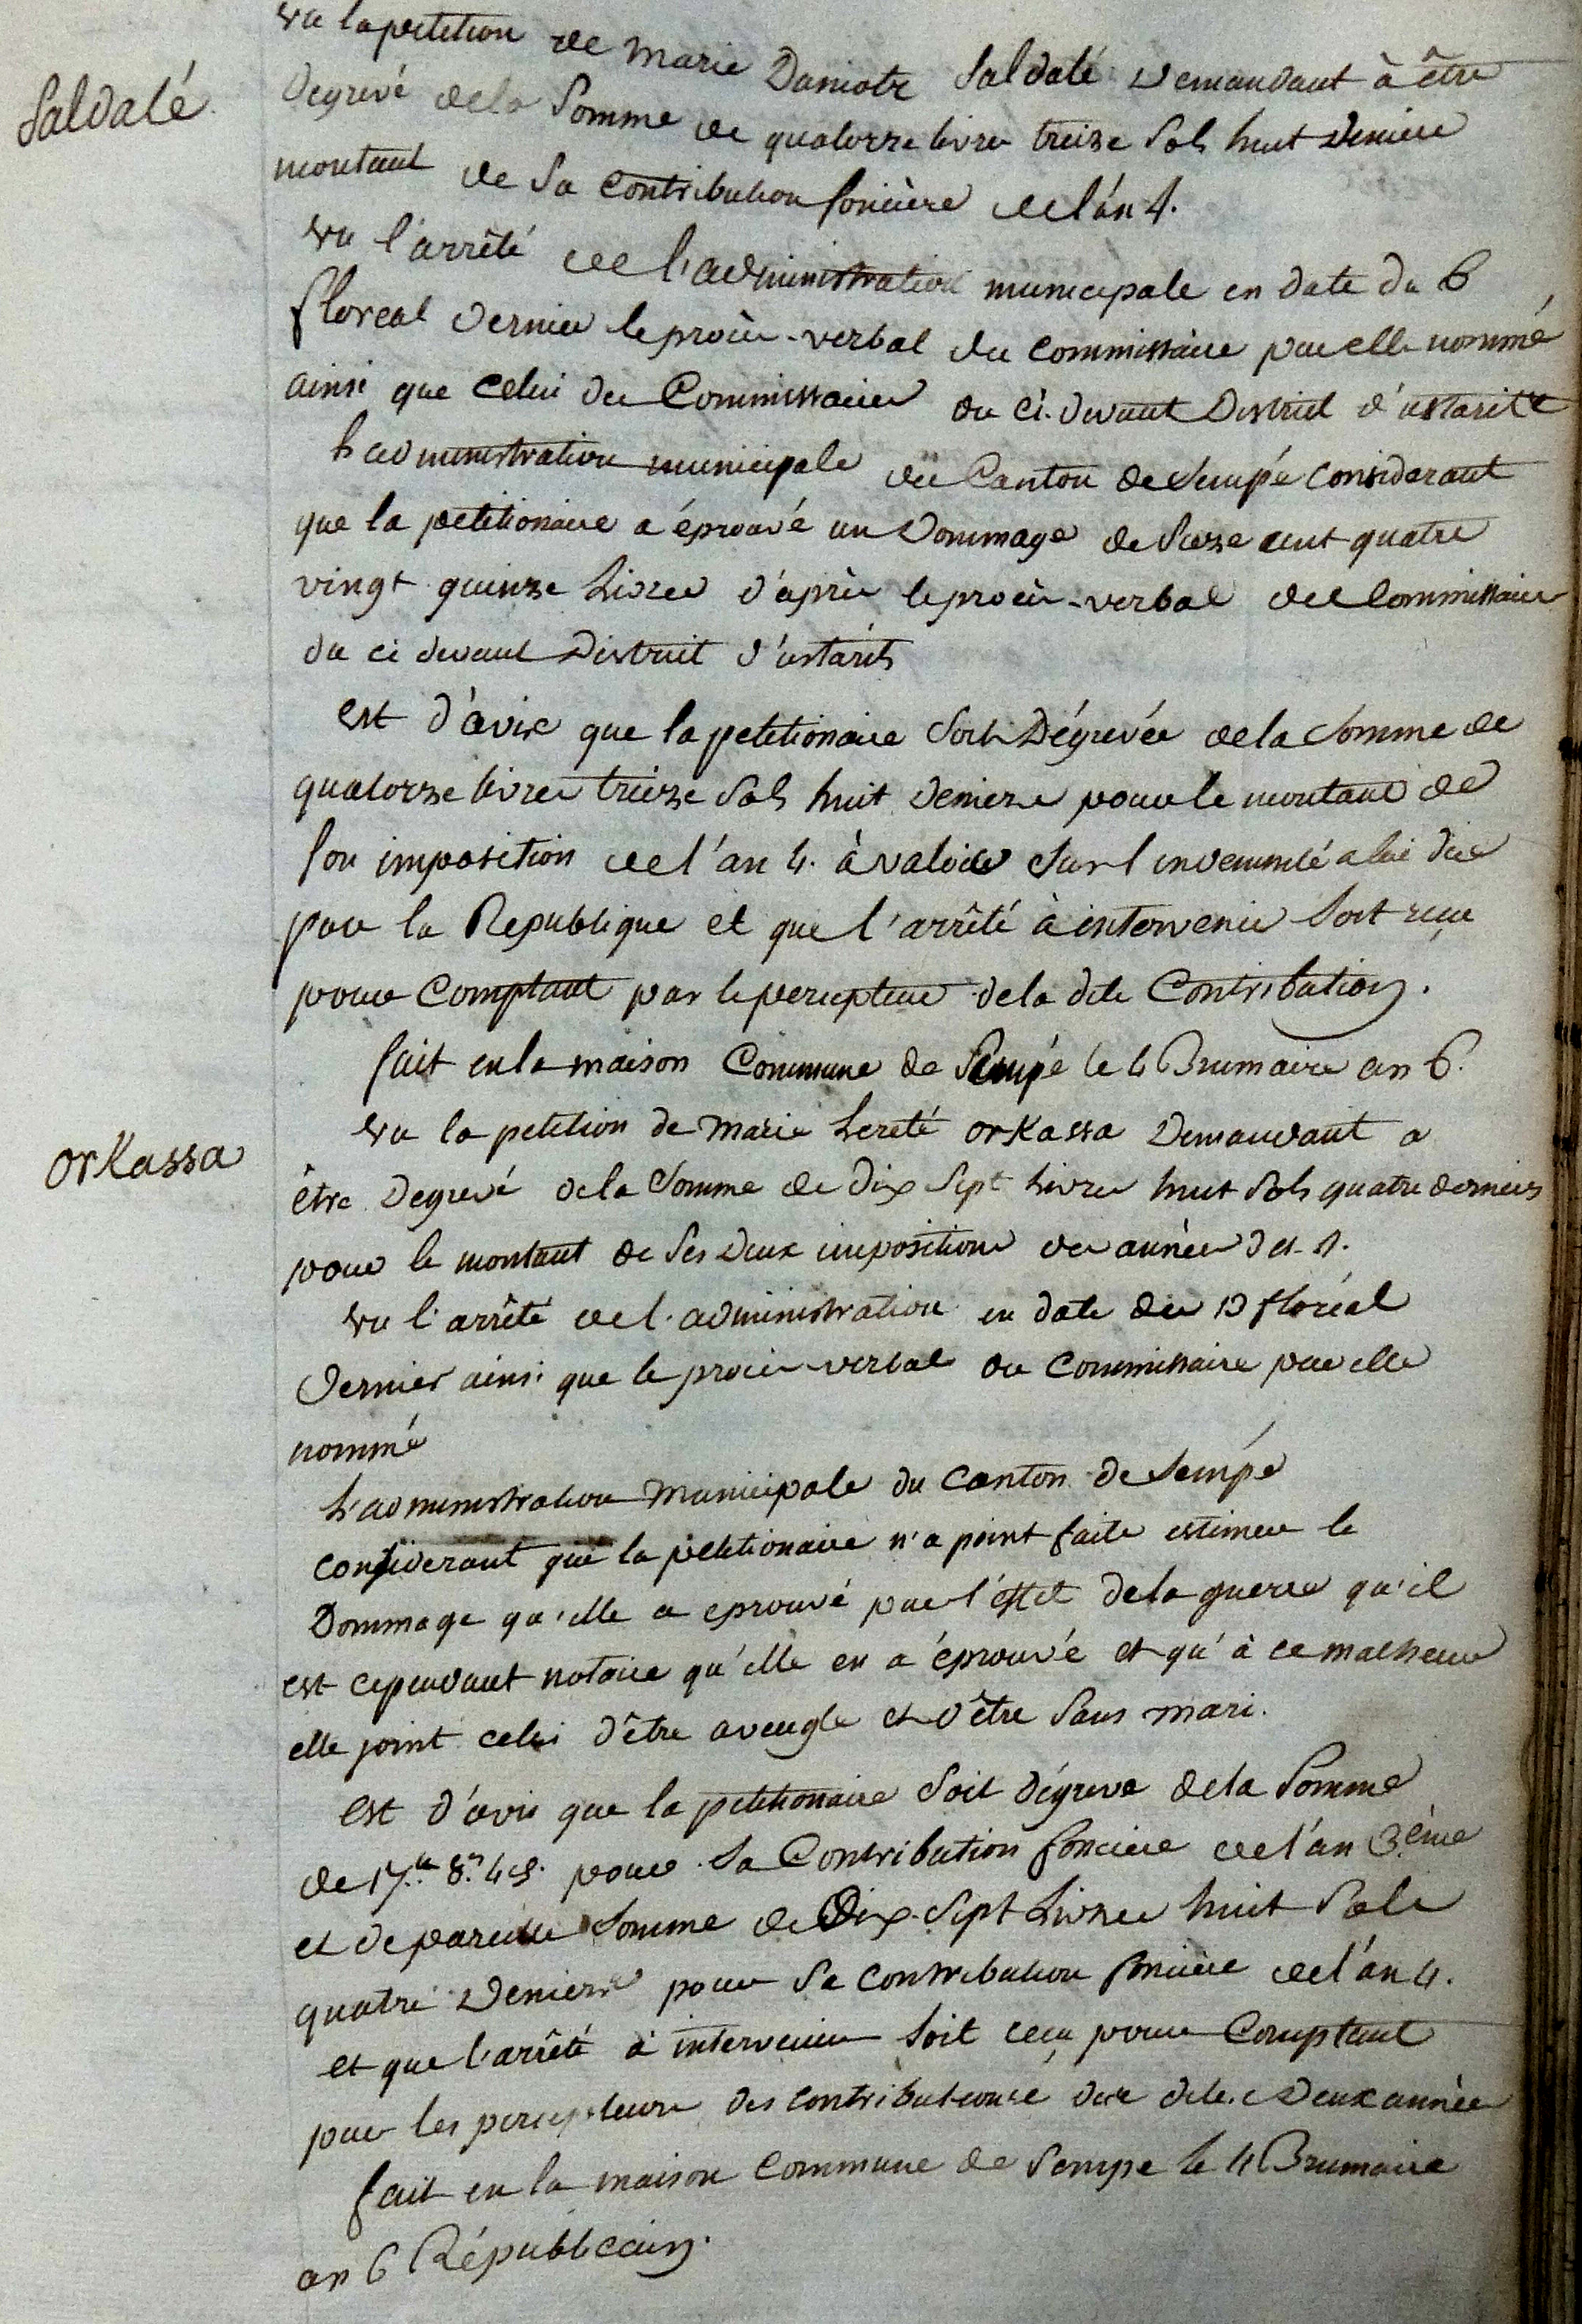 Vu la petition de Marie Daniotz Saldaté Demandant à être
Saldaté
Degrevé dela Somme de quatorze livres treize Sols huit Deniers
montant de Sa Contribution foncière de l'an 4.
Vu l'arrêté de l'administration municipale en date du 6
floreal Dernier le procès-verbal du commissaire par elle nommé
ainsi que celui du Commissaire du ci-devant District d'ustaritz
L'administration municipale du Canton de Sempé considerant
que la petitionaire a éprouvé un Dommage de Seize cent quatre
vingt quinze Livres d'après le procès-verbal du Commissaire
du ci devant District d'ustarits
est d'avis que la petitionaire Soit Dégrevée dela Somme de
quatorze livres treize Sols huit Deniers pour le montant de
Son imposition de l'an 4. à valoir Sur l'indemnité a lui due
par la Republique et que l'arrêté à intervenir Soit reçu
pour Comptant par le percepteur dela dite Contribution.
fait en la maison Commune de Sempé le 4 Brumaire an 6.
Vu la petition de Marie Hereté orKassa Demandant a
orKassa
être Degrevé dela Somme de Dix Sept Livres huit Sols quatre deniers
pour le montant de Ses Deux impositions des années 3 et 4.
Vu l'arrêté de l'administration en date du 13 floréal
Dernier ainsi que le procès-verbal du Commissaire par elle
nommé
L'administration Municipale du Canton de Sempé
considerant que la petitionaire n'a point faite estimer le
Dommage qu'elle a eprouvé par l'effet dela guerre qu'il
est cependant notoire qu'elle en a éprouvé et qu'à ce malheur
elle joint celui d'être aveugle et d'être Sans mari.
est d'avis que la petitionaire Soit dégreve dela Somme
de 17.ᵗᵗ 8.ˢ 4 d. pour Sa Contribution fonciere de l'an 3ème
et de pareille Somme de Dix-Sept Livres huit Sols
quatre Deniers pour Sa Contribution foncière de l'an 4.
et que l'arrêté à intervenir Soit reçu pour Comptant
par les percepteurs des contributions des dites Deux années
fait en la maison Commune de Sempe le 4 Brumaire
an 6 Républicain.